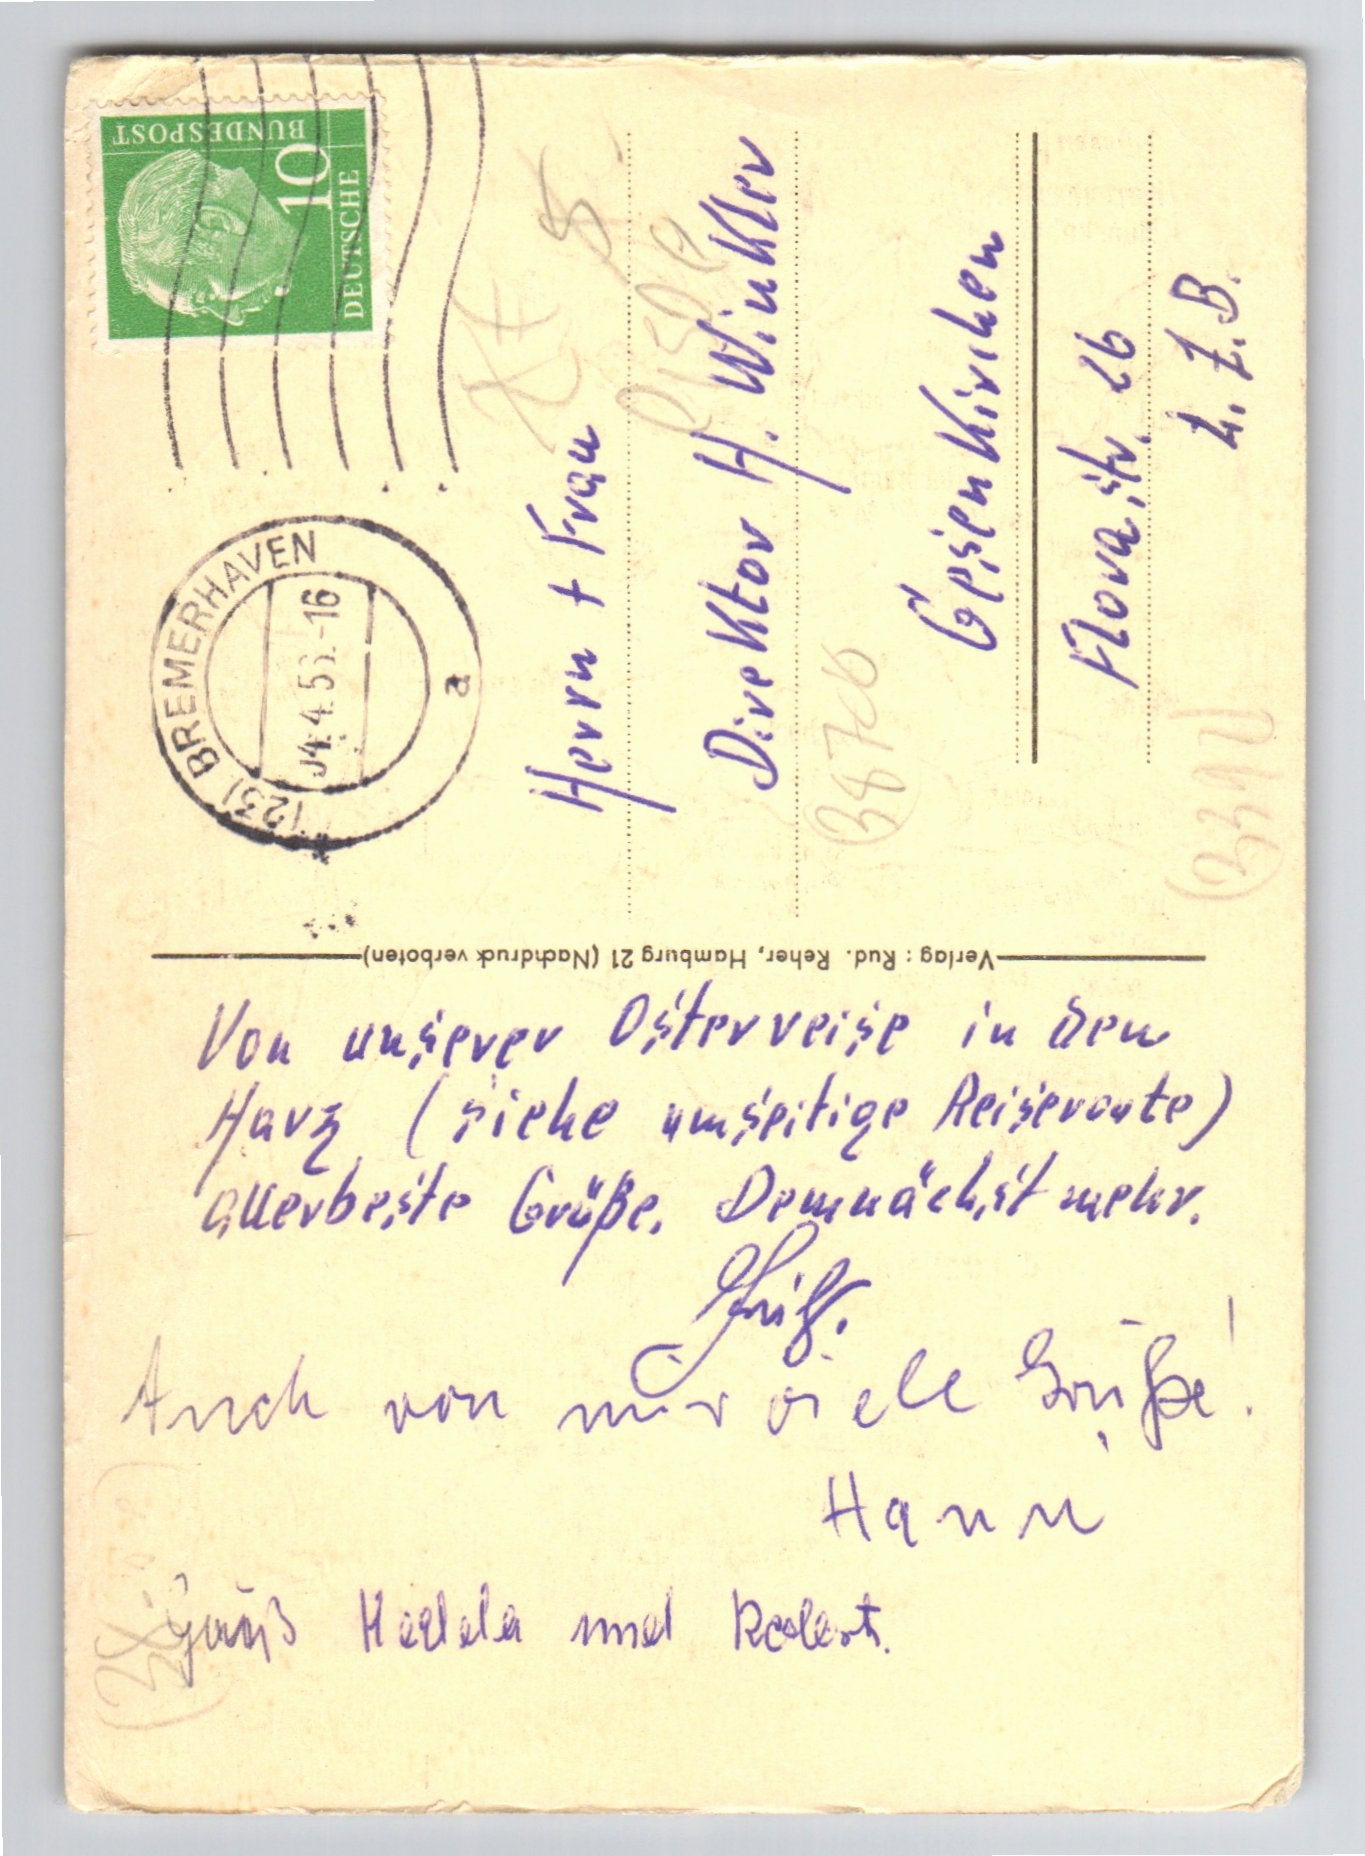 DEUTSCHE
BUNDESPOST
10
(23) BREMERHAVEN
-4.4.5 -16
a
Herrn + Frau
Direktor H. Winkler
Gelsenkirchen
Florastr. 26
L. Z. B.
Verlag: Rud. Reher, Hamburg 21 (Nachdruck verboten)
Von unserer Osterreise in den
Harz (siehe umseitige Reiseroute)
allerbeste Grüße. Demnächst mehr.
Auch von mir viele Grüße!
Hanni
und